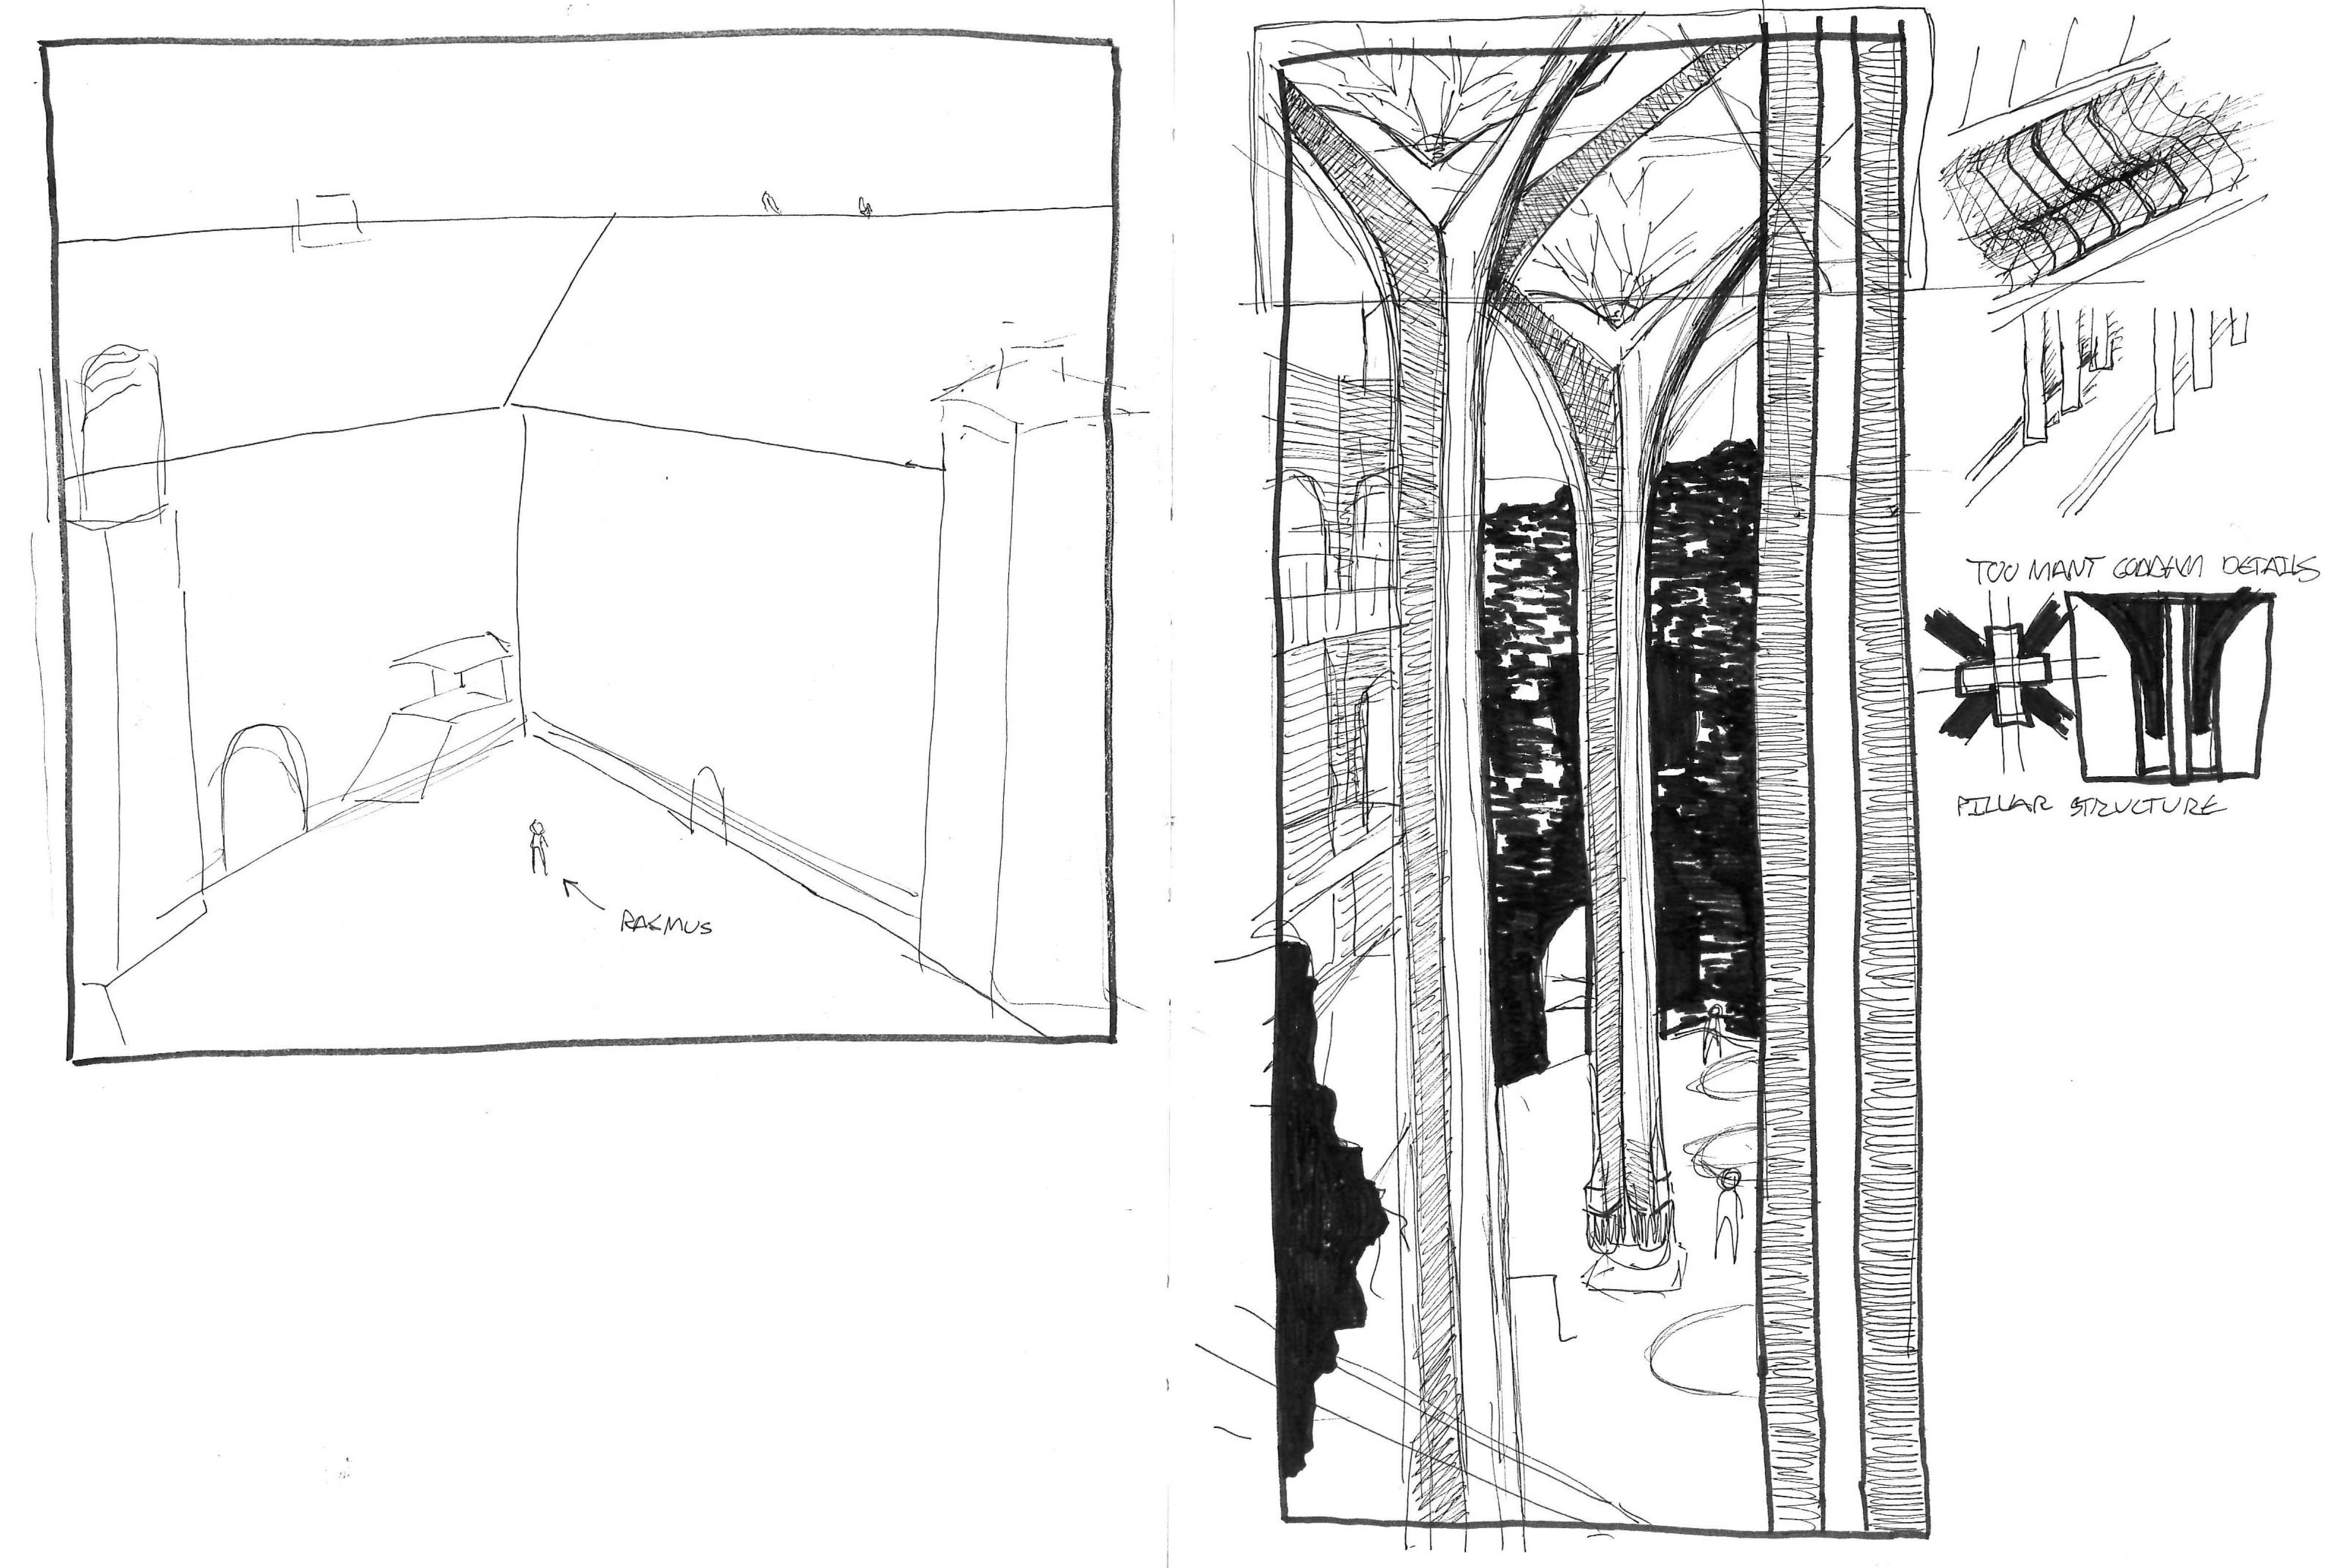 RASMUS
TOO MANY DETAILS
PILLAR STRUCTURE